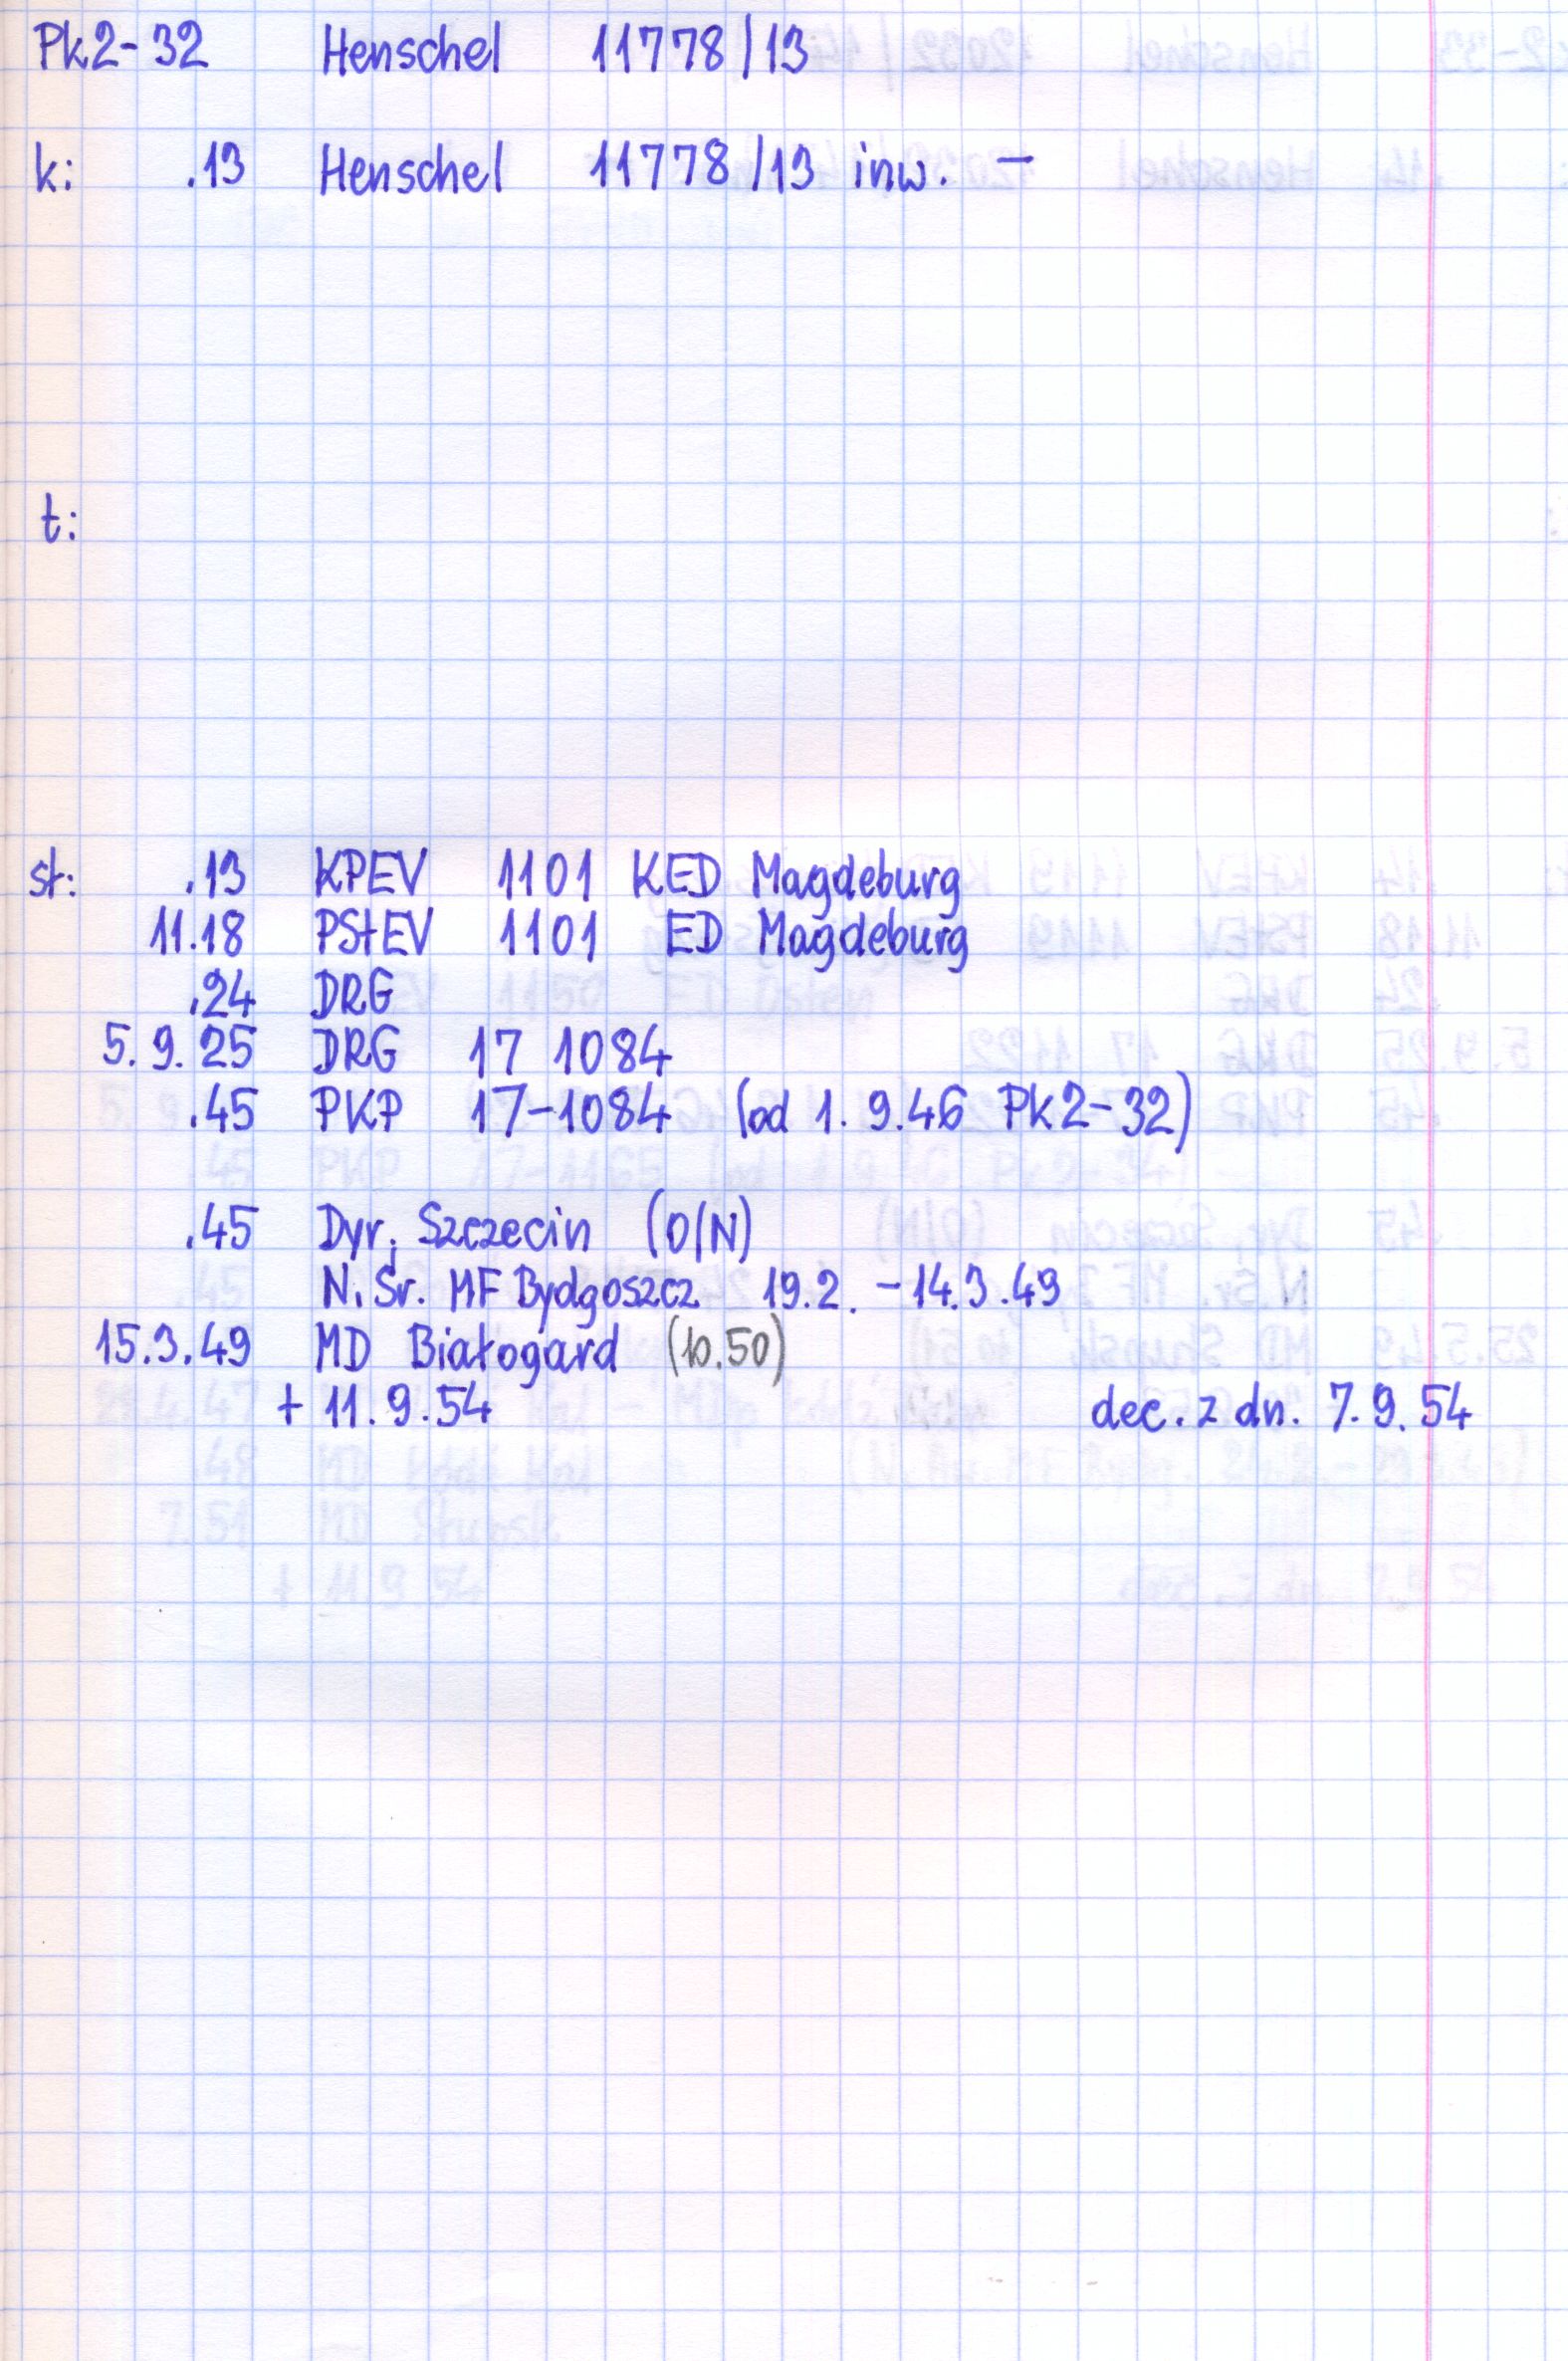 Pk2-32 Henschel 11778/13
k: .13 Henschel 11778/13 inw. -
t:
st: .13 KPEV 1101 KED Magdeburg
11.18 PStEV 1101 ED Magdeburg
.24 DRG
5.9.25 DRG 17 1084
.45 PKP 17-1084 (od 1.9.46 Pk2-32)
.45 Dyr. Szczecin (O/N)
N.Śr. MF Bydgoszcz 19.2. - 14.3.49
15.3.49 MD Białogard (10.50)
+ 11.9.54 dec. z dn. 7.9.54